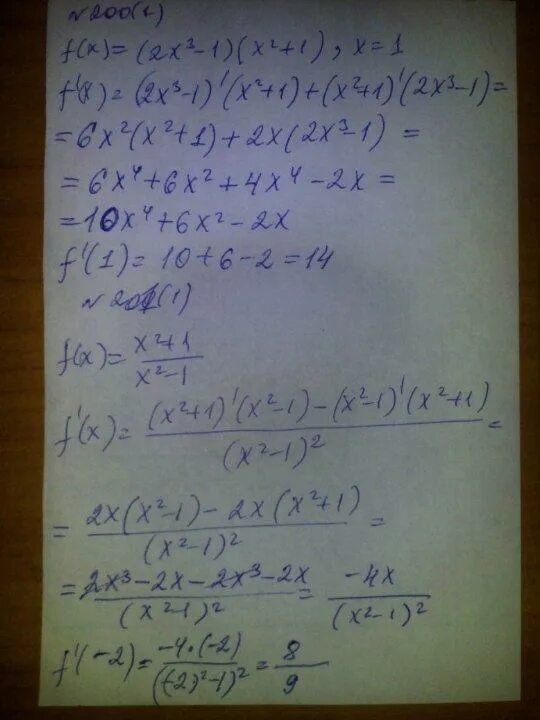 №200(1)
f(x) = (2x³-1)(x²+1), x=1
f'(x) = (2x³-1)'(x²+1)+(x²+1)'(2x³-1)=
=6x²(x²+1)+2x(2x³-1) =
= 6x⁴+6x²+4x⁴-2x =
=10x⁴+6x²-2x
f'(1)= 10+6-2=14
№201(1)
f(x)= (x²+1)/(x²-1)
f'(x)= ((x²+1)'(x²-1)-(x²-1)'(x²+1))/(x²-1)² =
= (2x(x²-1)-2x(x²+1))/(x²-1)² =
= (2x³-2x-2x³-2x)/(x²-1)² = -4x/(x²-1)²
f'(-2)= -4·(-2)/((-2)²-1)² = 8/9